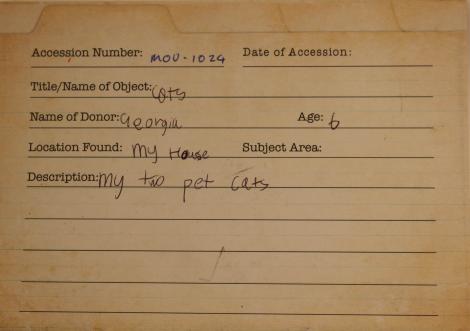 Accession Number: MOU-1024 Date of Accession:
Title/Name of Object: Cats
Name of Donor: Georgia Age: 6
Location Found: My House Subject Area:
Description: My two pet Cats